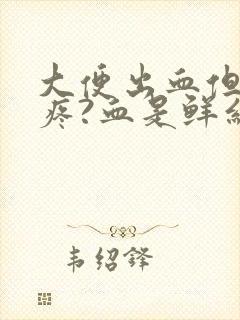 大便出血但
疼?血是鲜红
韦绍锋